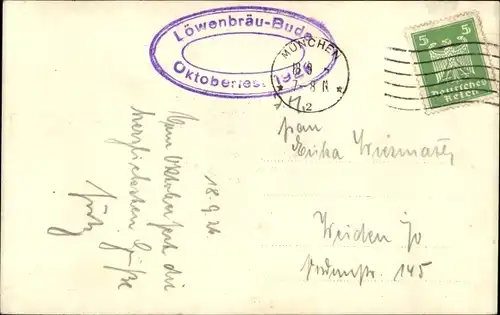 Löwenbräu-Bude
Oktoberfest 1926
MÜNCHEN
7-8 N
* 2 *
5 5
Deutsches
Reich
18.9.26
Vom Oktoberfest die
herzlichsten Grüße
Fritz
Frau
Erika
Weiden
145